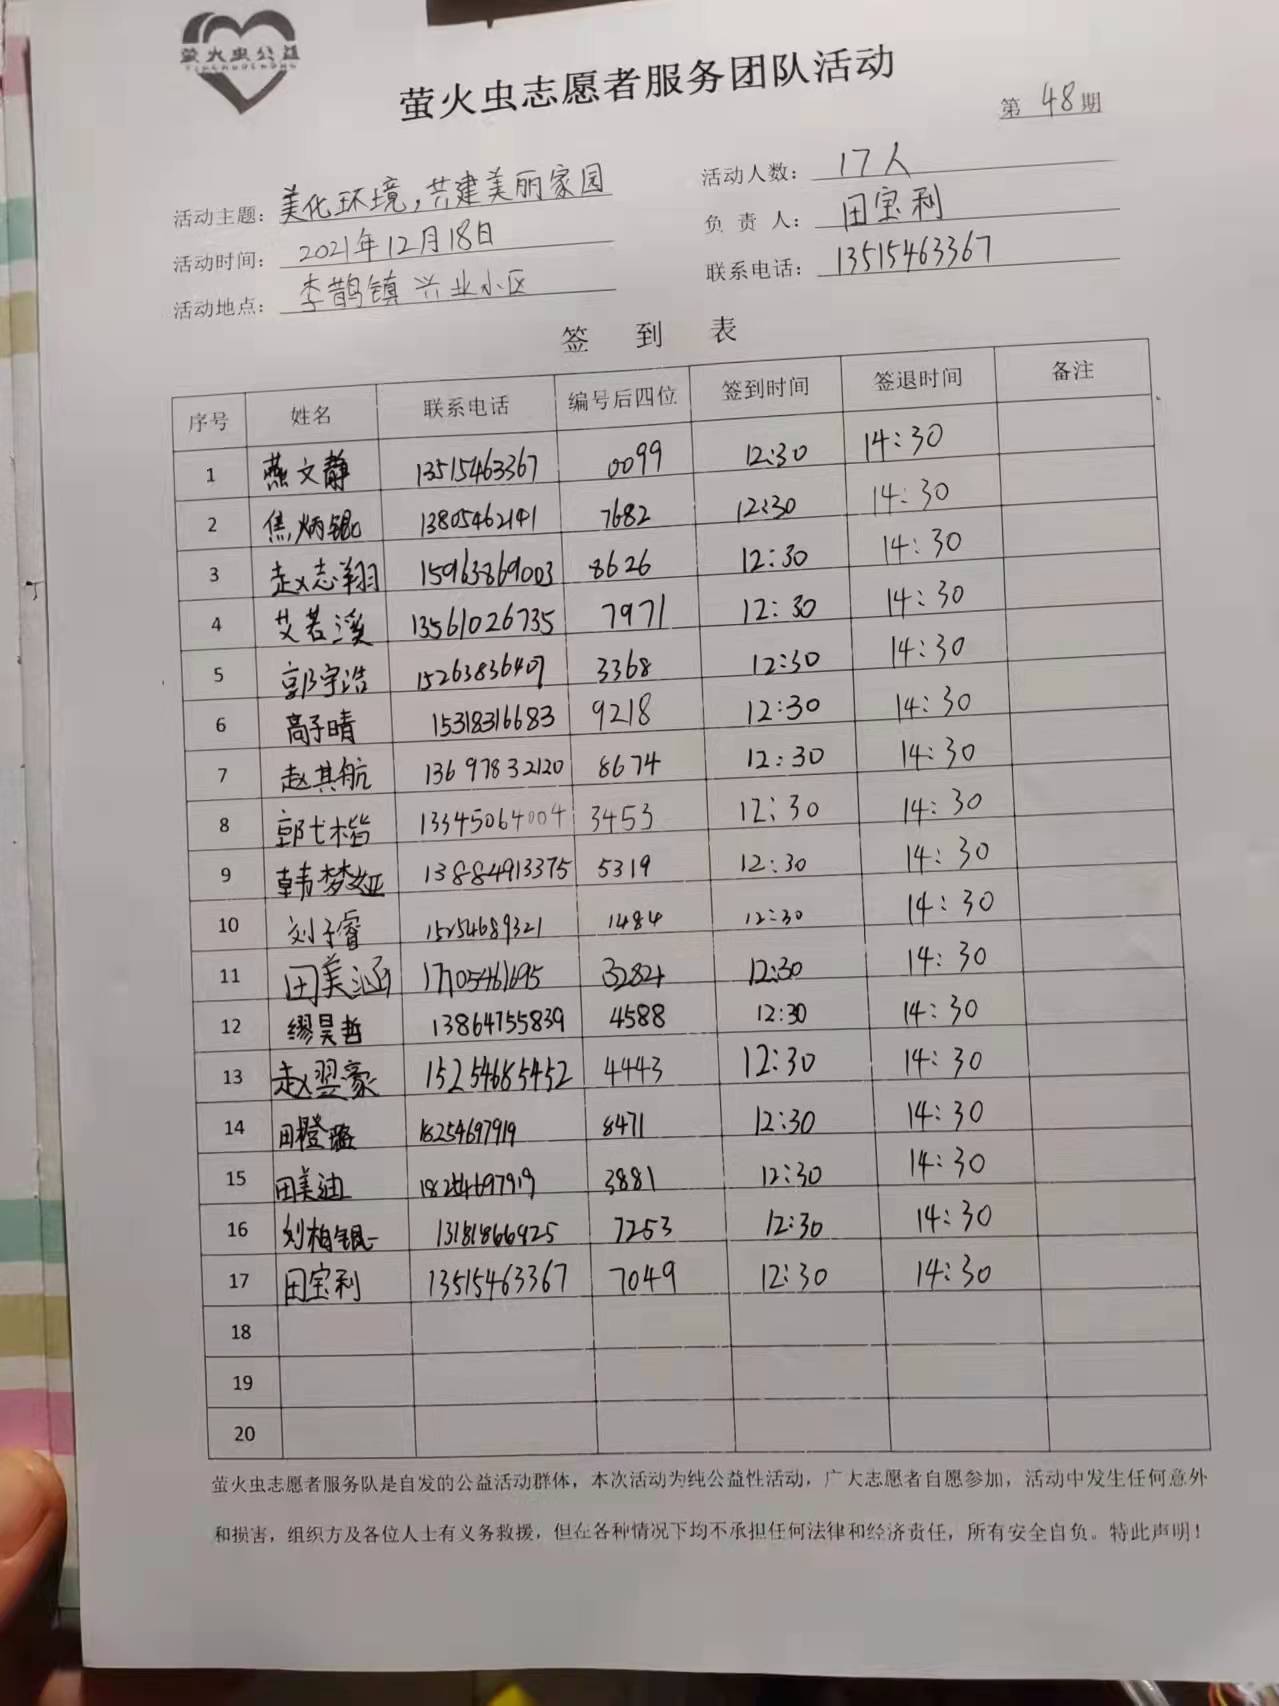 萤火虫公益
YINGHUOCHONG
萤火虫志愿者服务团队活动
第 48 期
活动主题：美化环境，共建美丽家园 活动人数：17人
活动时间：2021年12月18日 负 责 人：田宝利
活动地点：李鹊镇兴业小区 联系电话：13515463367
签 到 表
序号 姓名 联系电话 编号后四位 签到时间 签退时间 备注
1 燕文静 13515463367 0099 12:30 14:30
2 焦炳锟 13805462141 7682 12:30 14:30
3 赵志翔 15963869003 8626 12:30 14:30
4 艾若溪 13561026735 7971 12:30 14:30
5 郭宇浩 15263836407 3368 12:30 14:30
6 高子晴 15318316683 9218 12:30 14:30
7 赵其航 13697832120 8674 12:30 14:30
8 郭弋楷 13345064004 3453 12:30 14:30
9 韩梦娅 13884913375 5319 12:30 14:30
10 刘子睿 15254689321 1484 12:30 14:30
11 田美涵 17105461695 3284 12:30 14:30
12 缪昊哲 13864755839 4588 12:30 14:30
13 赵翌豪 15254685452 4443 12:30 14:30
14 田橙璐 18254697919 8471 12:30 14:30
15 田美迪 18254697919 3881 12:30 14:30
16 刘柏锟 13181866925 7253 12:30 14:30
17 田宝利 13515463367 7049 12:30 14:30
18
19
20
萤火虫志愿者服务队是自发的公益活动群体，本次活动为纯公益性活动，广大志愿者自愿参加，活动中发生任何意外
和损害，组织方及各位人士有义务救援，但在各种情况下均不承担任何法律和经济责任，所有安全自负。特此声明！